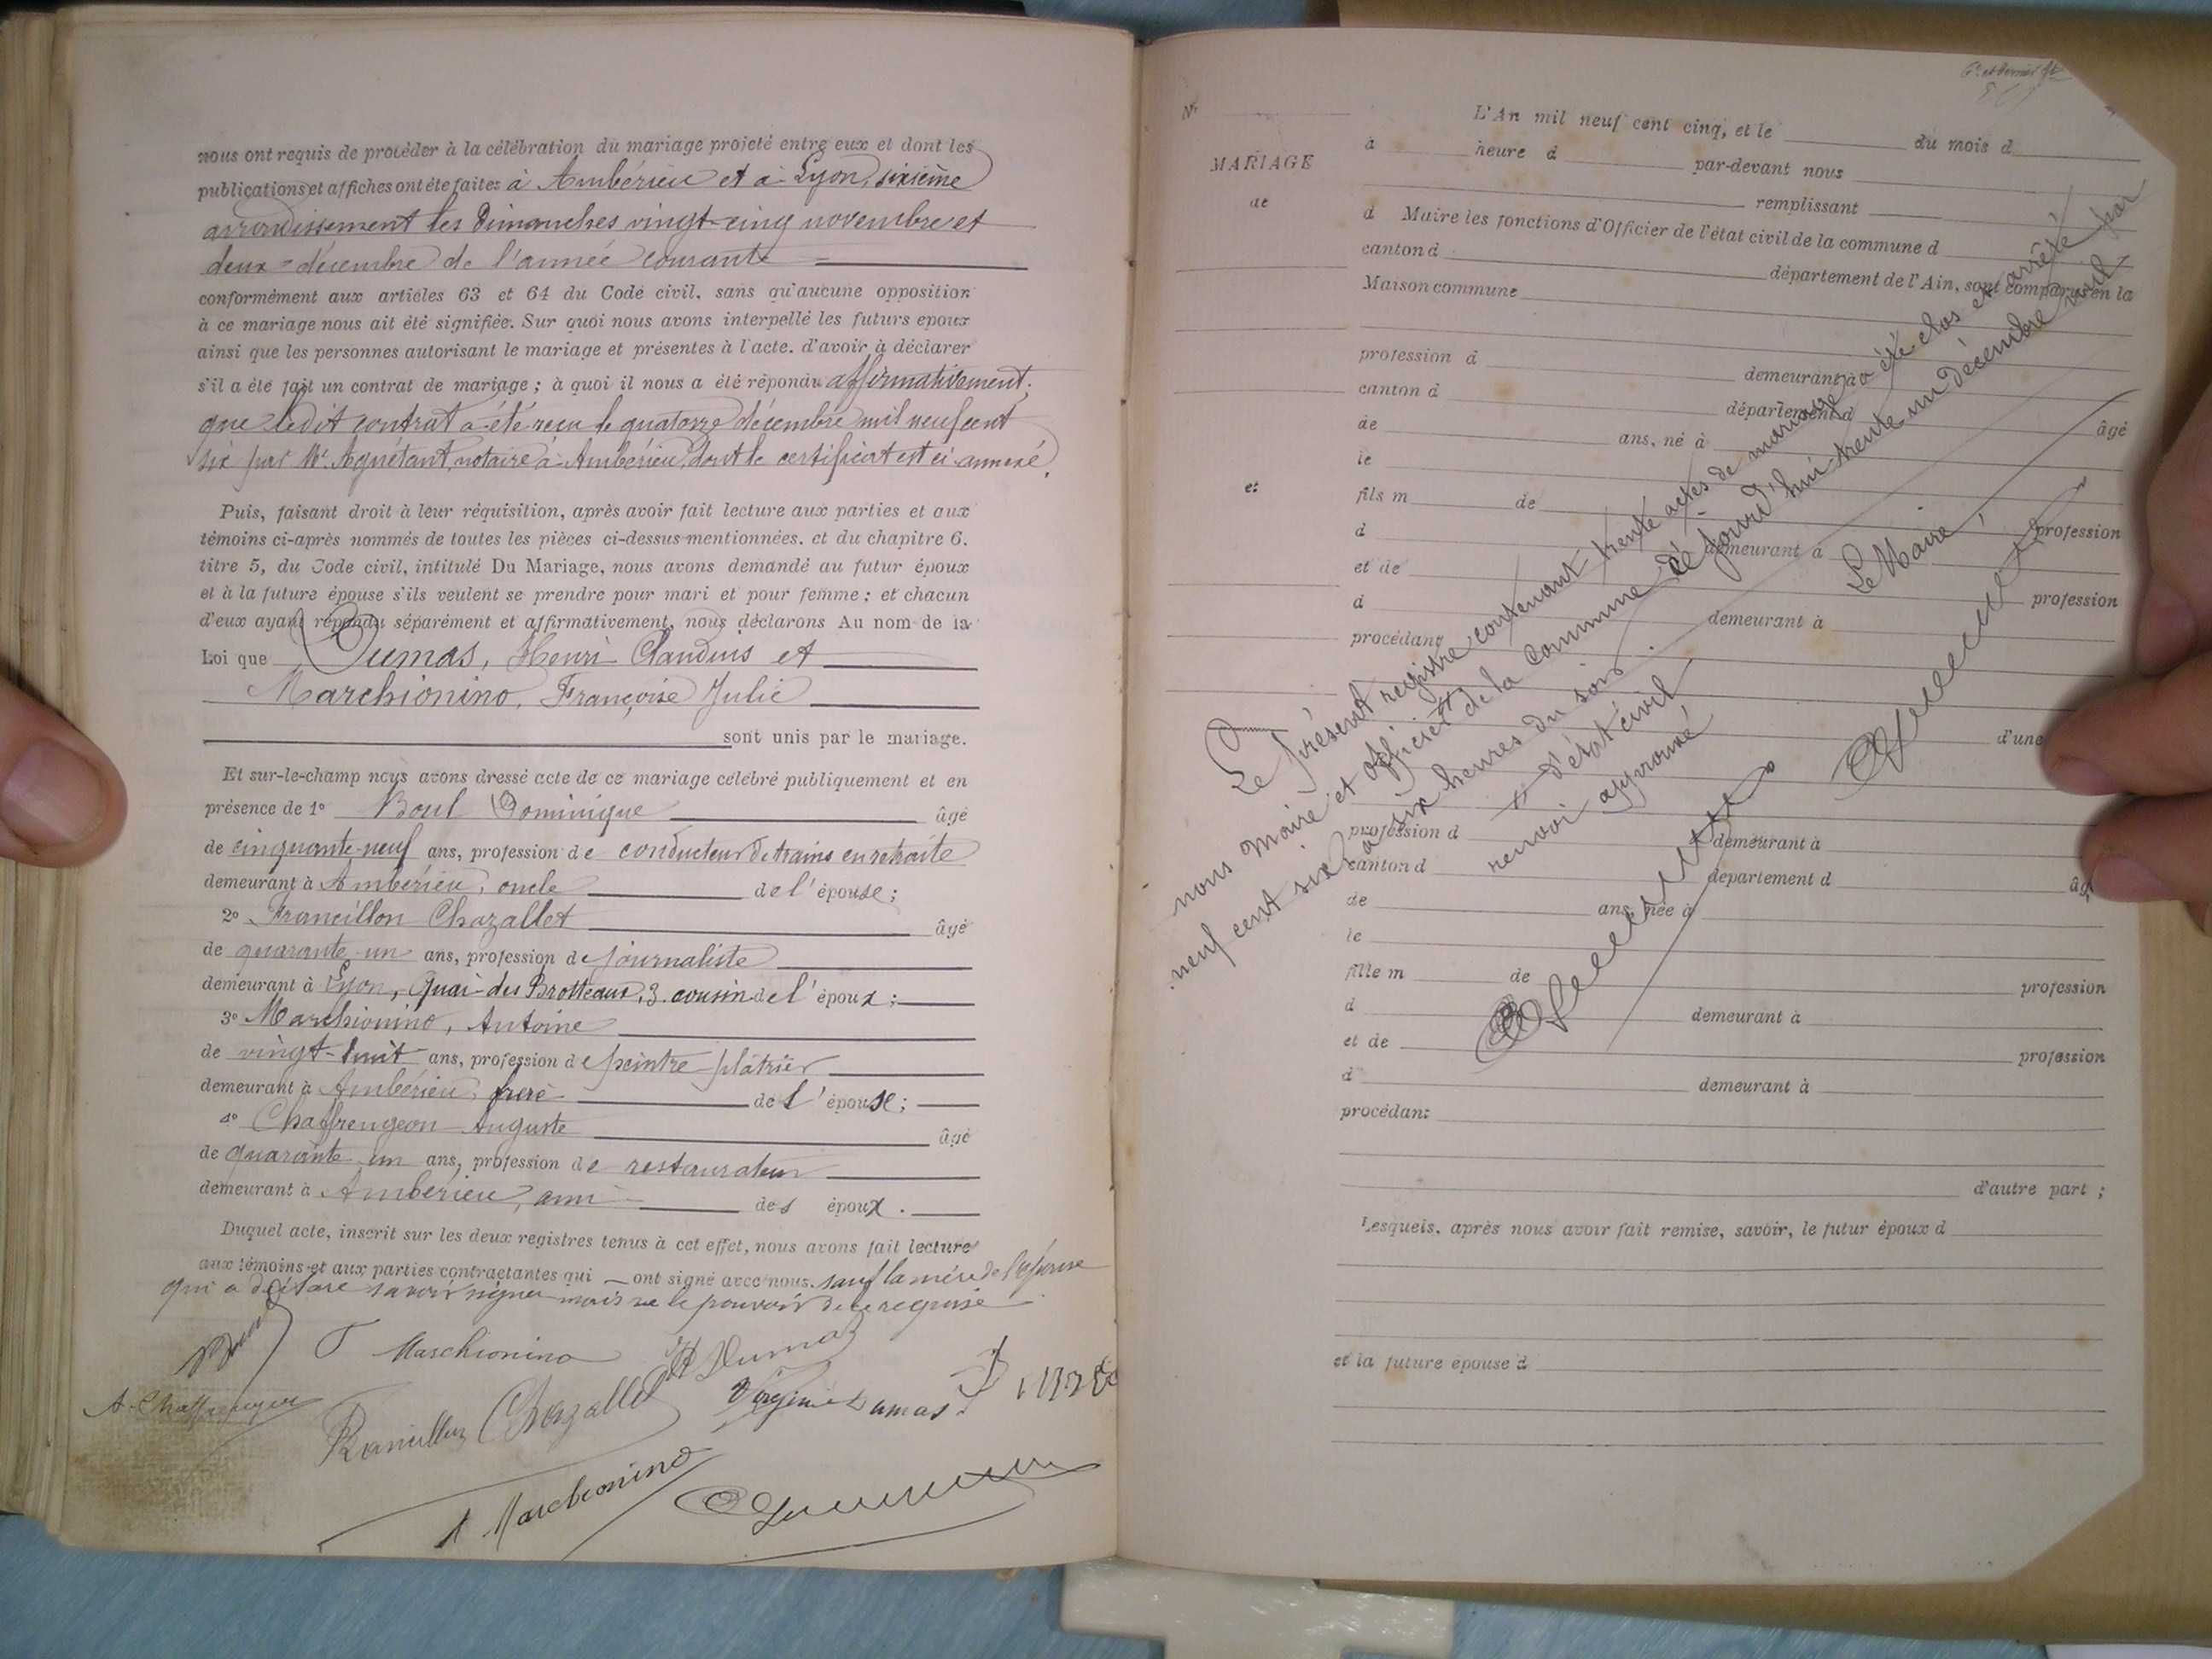 nous ont requis de procéder à la célébration du mariage projeté entre eux et dont les
publications et affiches ont été faites à Ambérieu et à Lyon, sixième
arrondissement les Dimanches vingt-cinq novembre et
deux décembre de l'année courante
conformément aux articles 63 et 64 du Code civil, sans qu'aucune opposition
à ce mariage nous ait été signifiée. Sur quoi nous avons interpellé les futurs époux
ainsi que les personnes autorisant le mariage et présentes à l'acte, d'avoir à déclarer
s'il a été fait un contrat de mariage ; à quoi il nous a été répondu affirmativement,
que ledit contrat a été reçu le quatorze décembre mil neuf cent
six par Me Agnétant, notaire à Ambérieu, dont le certificat est ci annexé.
Puis, faisant droit à leur réquisition, après avoir fait lecture aux parties et aux
témoins ci-après nommés de toutes les pièces ci-dessus mentionnées, et du chapitre 6,
titre 5, du Code civil, intitulé Du Mariage, nous avons demandé au futur époux
et à la future épouse s'ils veulent se prendre pour mari et pour femme ; et chacun
d'eux ayant répondu séparément et affirmativement, nous déclarons Au nom de la
Loi que Dumas, Henri Claudius et
Marchionino, Françoise Julie
sont unis par le mariage.
Et sur-le-champ nous avons dressé acte de ce mariage célébré publiquement et en
présence de 1° Boul Dominique âgé
de cinquante-neuf ans, profession de conducteur de trains en retraite
demeurant à Ambérieu, oncle de l'épouse ;
2° Francillon Chazallet âgé
de quarante un ans, profession de journaliste
demeurant à Lyon, Quai des Brotteaux, 3. cousin de l'époux ;
3° Marchionino, Antoine
de vingt-huit ans, profession de peintre plâtrier
demeurant à Ambérieu, frère de l'épouse ;
4° Chaffrengeon Auguste âgé
de quarante un ans, profession de restaurateur
demeurant à Ambérieu, ami des époux.
Duquel acte, inscrit sur les deux registres tenus à cet effet, nous avons fait lecture
aux témoins et aux parties contractantes qui ont signé avec nous. sauf la mère de l'épouse
qui a déclaré savoir signer mais ne le pouvoir de ce requise
F Marchionino
H Dumas
A. Chaffrengeon
Francillon Chazallet
Virginie Dumas
A Marchionino
6e et dernier ft
N°
MARIAGE
de
et
L'An mil neuf cent cinq, et le du mois d
à heure d par-devant nous
remplissant
d Maire les fonctions d'Officier de l'état civil de la commune d
canton d département de l'Ain, sont comparus en la
Maison commune
profession d demeurant à
canton d département d
de ans, né à âgé
le
fils m de profession
d demeurant à
et de profession
d demeurant à
procédant
d'une
profession d demeurant à
canton d département d
de ans, née à
le
fille m de profession
d demeurant à
et de profession
d demeurant à
procédant
d'autre part ;
Lesquels, après nous avoir fait remise, savoir, le futur époux d
et la future épouse d
Le présent registre contenant trente actes de mariage a été clos et arrêté par
nous Maire et officier # de la Commune ce jourd'hui trente un décembre mil
neuf cent six à six heures du soir.
# d'état civil
renvoi approuvé
Le Maire,